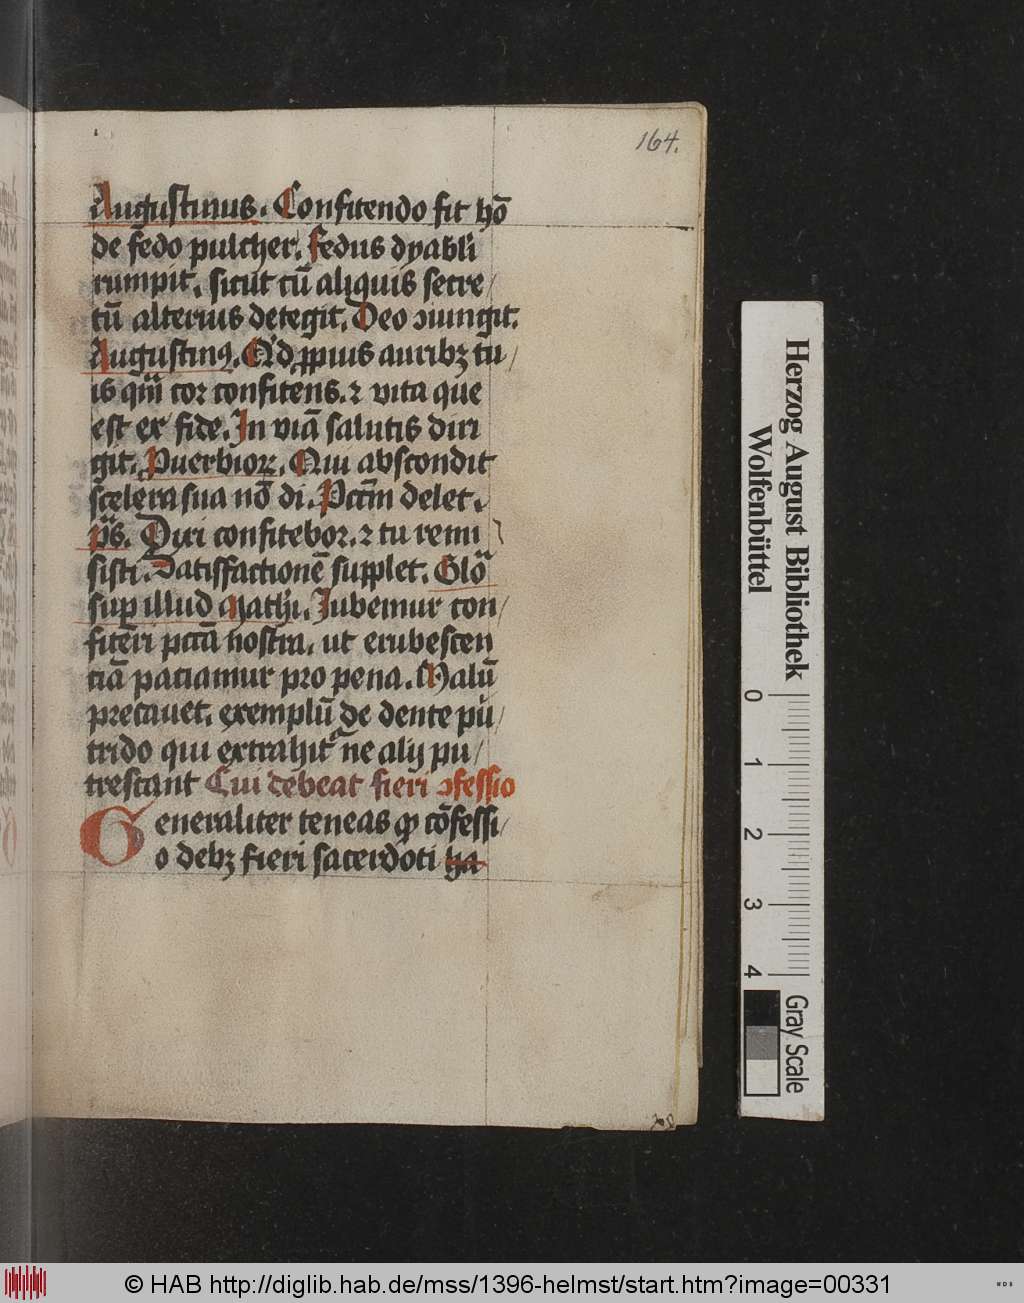 164.
Augustinus. Confitendo fit hō
de fedo pulcher. Fedus dyabli
rumpit. sicut cū aliquis secre/
tū alterius detegit. Deo ɔiungit.
Augustinꝰ. Ad ꝓpius auribꝫ tu/
is qm̄ cor confitens. ⁊ vita que
est ex fide. In viā salutis diri
git. Puerbioꝝ. Qui abscondit
scelera sua nō di. Pctm̄ delet.
p̄s. Dixi confitebor. ⁊ tu remi
sisti. Satisffactionē supplet. Glōa
suꝑ illud Mathi. Iubemur con/
fiteri pctā nostra. ut erubescen
ciā patiamur pro pena. Malū
precauet. exemplū de dente pu/
trido qui extrahit᷑ ne alij pu/
trescant Cui debeat fieri ɔfessio
Generaliter teneas ꝙ cōfessi/
o debꝫ fieri sacerdoti ha
Herzog August Bibliothek
Wolfenbüttel
0 1 2 3 4
Gray Scale
© HAB http://diglib.hab.de/mss/1396-helmst/start.htm?image=00331